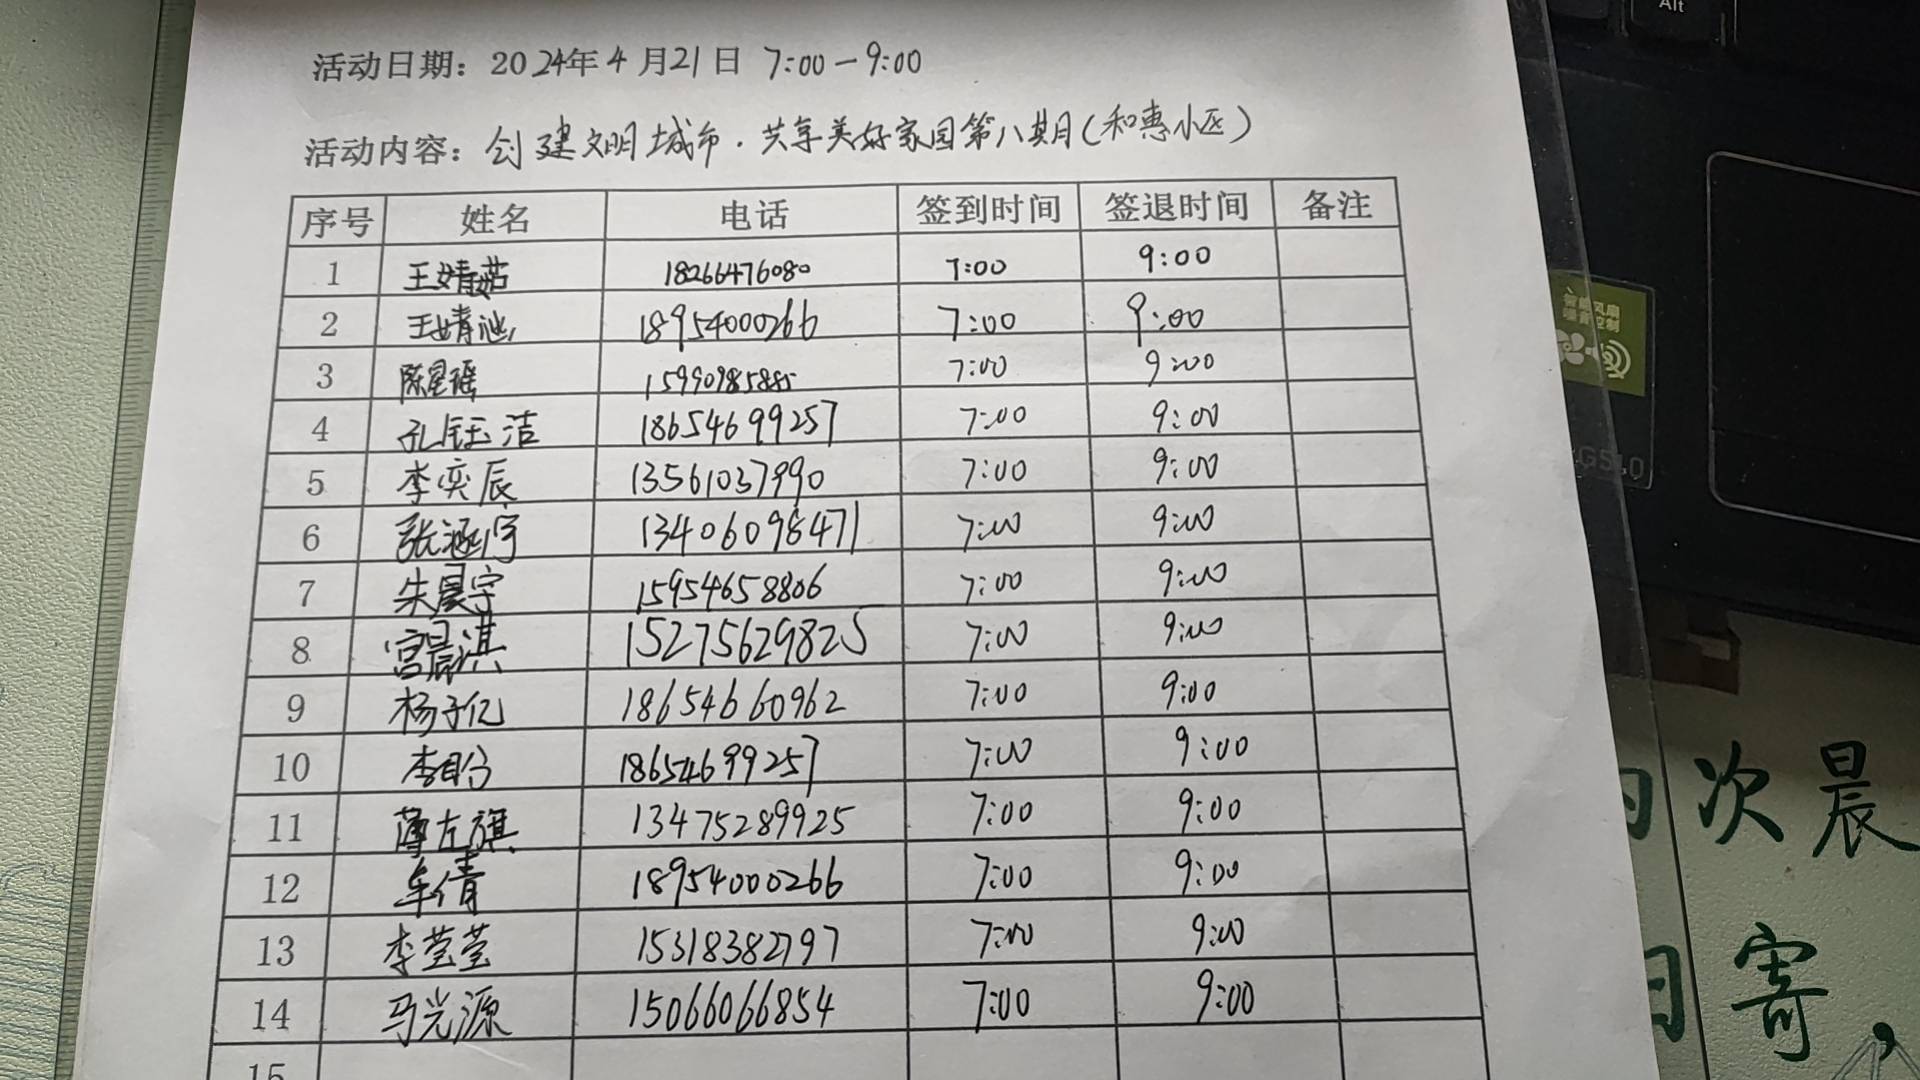 活动日期：2024年4月21日 7:00—9:00
活动内容：创建文明城市·共享美好家园第八期(和惠小区)
序号 姓名 电话 签到时间 签退时间 备注
1 王婧茹 18266476080 7:00 9:00
2 王婧池 18954000266 7:00 9:00
3 陈星瑶 15990985885 7:00 9:00
4 孔钰洁 18654699257 7:00 9:00
5 李奕辰 13561037990 7:00 9:00
6 张涵宇 13406098471 7:00 9:00
7 朱晨宇 15954658806 7:00 9:00
8 宫晨淇 15275629825 7:00 9:00
9 杨子亿 18654660962 7:00 9:00
10 李 18654699257 7:00 9:00
11 薄左旗 13475289925 7:00 9:00
12 牟倩 18954000266 7:00 9:00
13 李莹莹 15318382797 7:00 9:00
14 马光源 15066066854 7:00 9:00
15
Alt
智能风扇
噪音控制
G510
次晨
日寄，